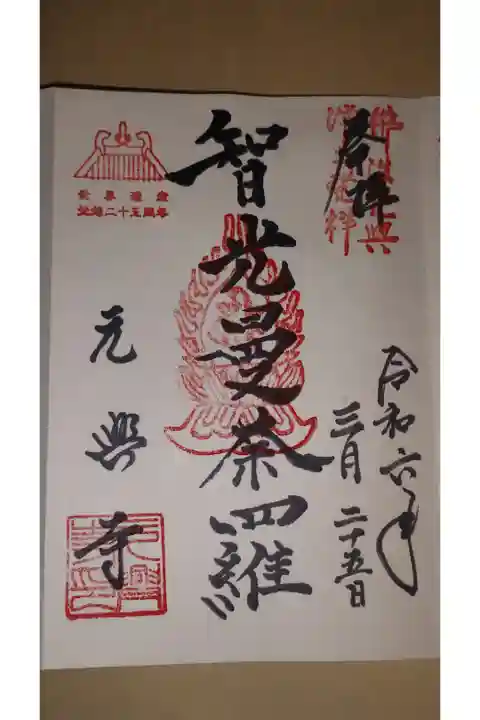 奉拝
令和六年
三月二十五日
智光曼荼羅
世界遺産
登録二十五周年
元興寺